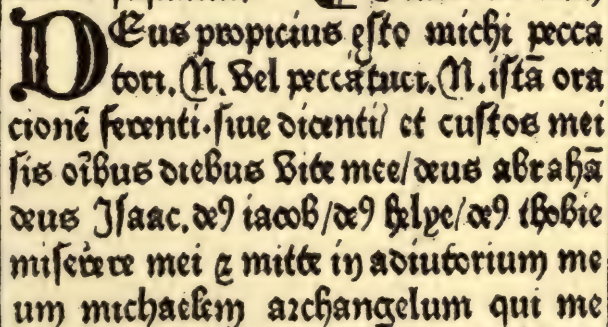 DEus propicius esto michi pecca
tori. N. vel peccatrici. N. istā ora
cionē ferenti. siue dicenti/ et custos mei
sis oībus diebus vite mee/ deus abrahā
deus Isaac. deꝰ iacob/ deꝰ helye/ deꝰ thobie
miserere mei ⁊ mitte in adiutorium me
um michaelem archangelum qui me